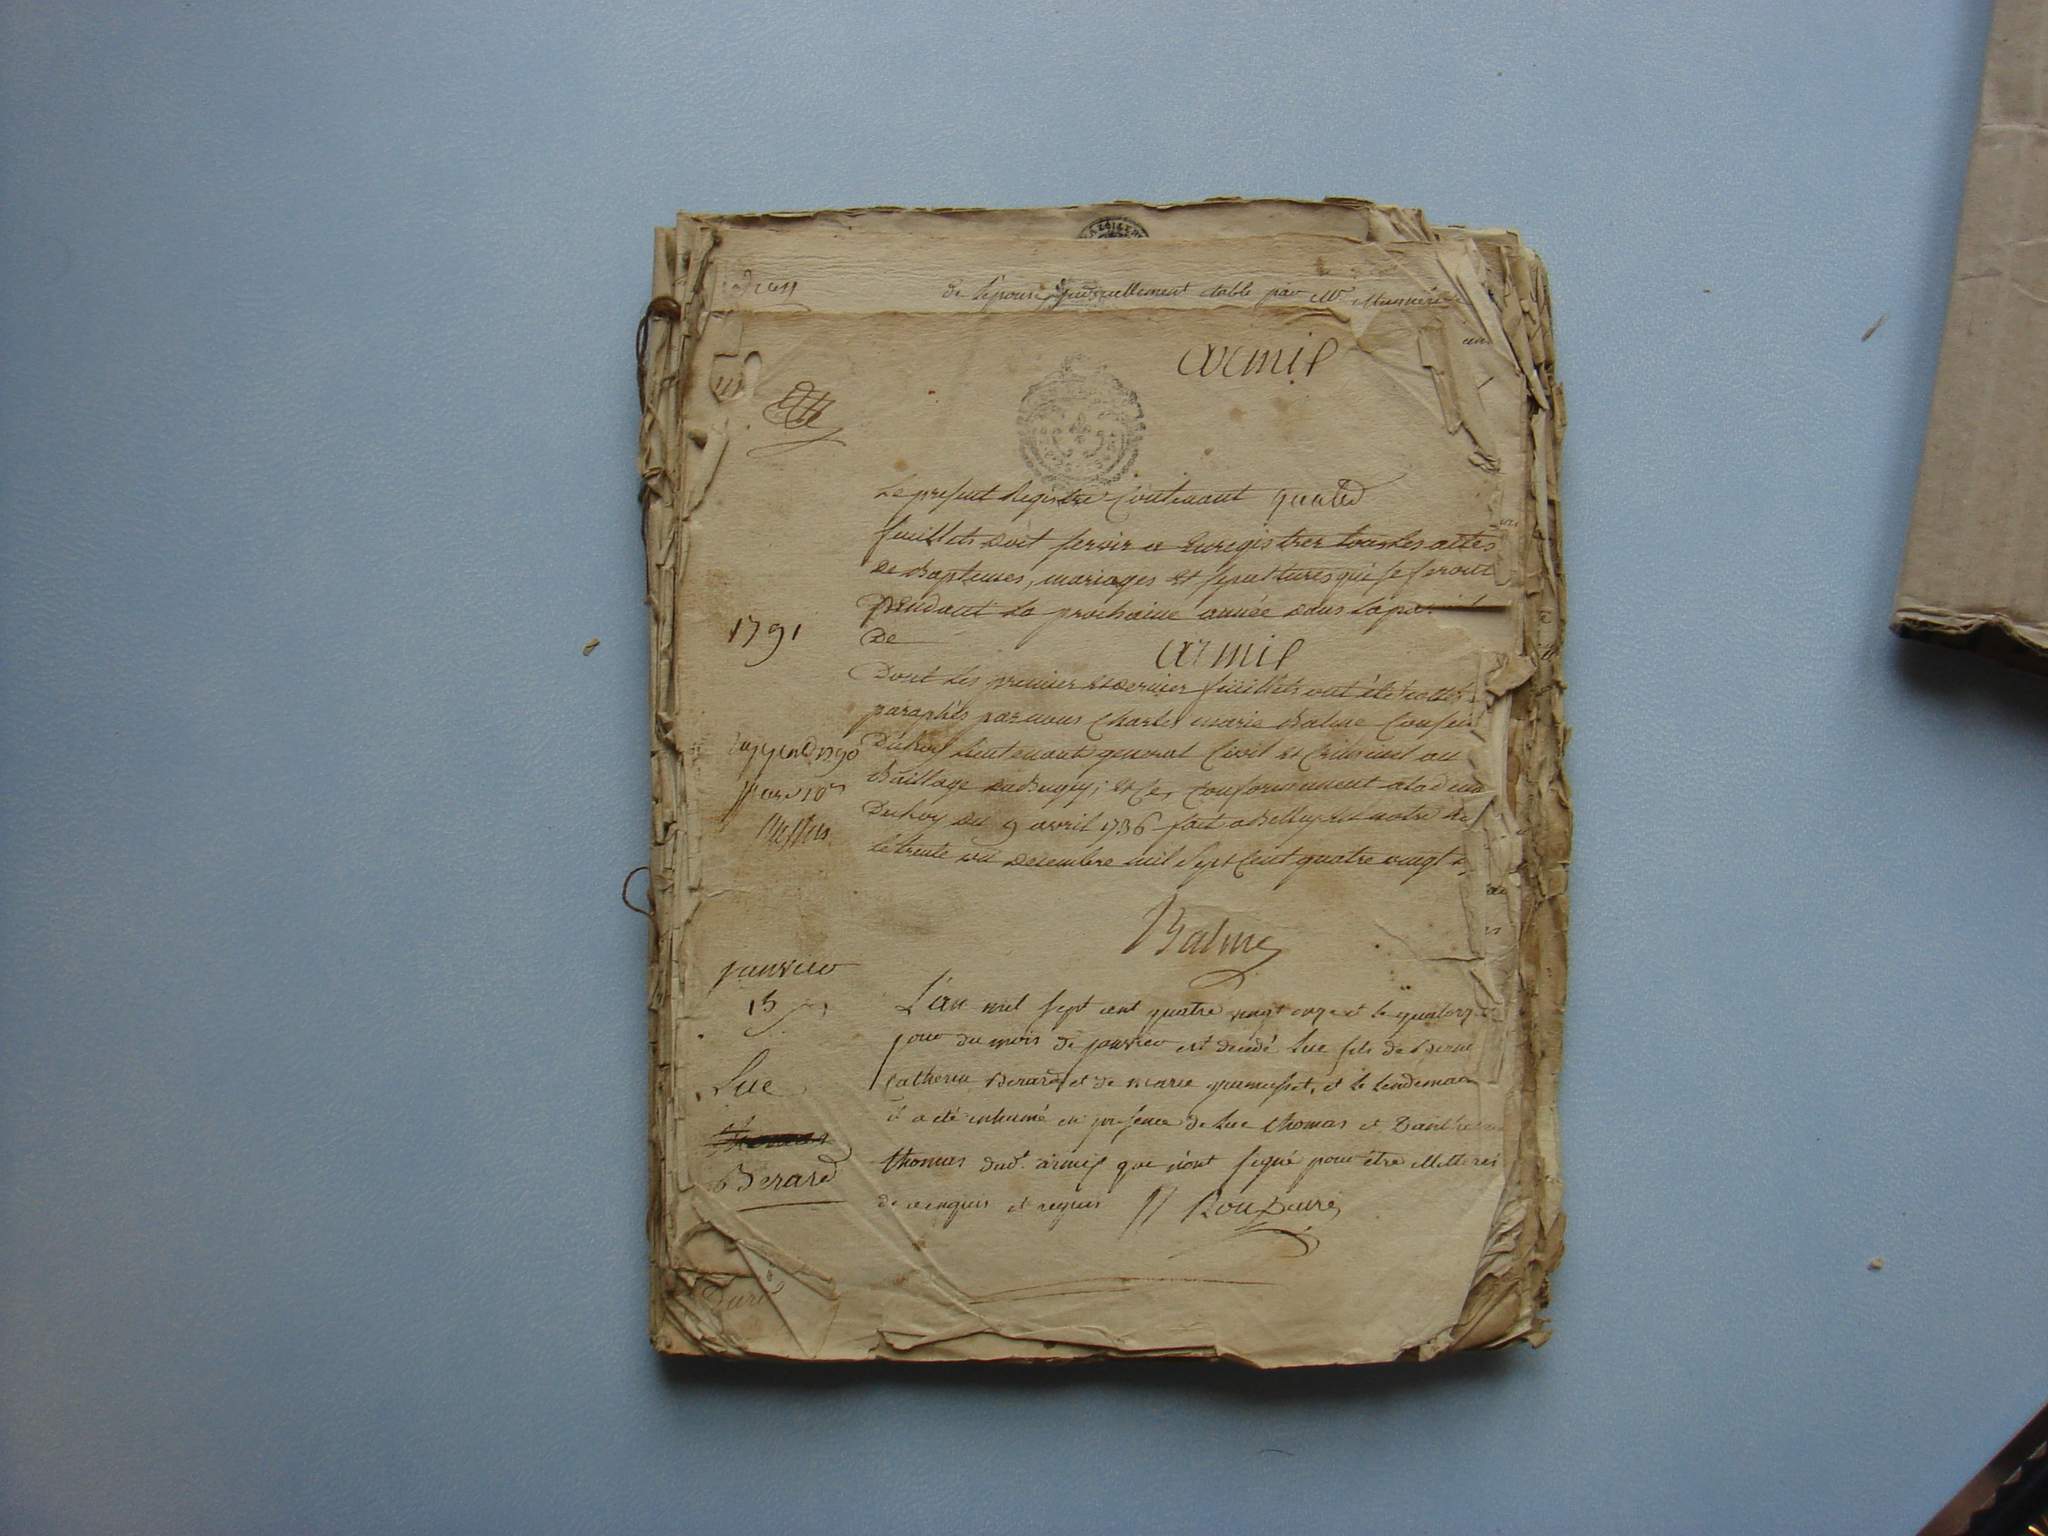 de l'épouse, actuellement établi par Mr
armix
Le present Registre Contenant quatre
feuillets doit servir a Enregistrer tous les actes
de Baptemes, mariages et sepultures qui se feront
pendant la prochaine année dans la
1791
De
armix
Dont les premier et dernier feuillets ont été cottés
paraphés par nous Charles marie Balme
Du Roy Lieutenant general Civil et Criminel au
1790
Bailliage du Bugey; et ce, Conformement a la
Du Roy du 9 avril 1736 fait a Belley
le trente un decembre mil sept cent quatre vingt
Balme
janvier
15
L'an mil sept cent quatre vingt onze et le quatorze
jour du mois de janvier est decedé Luc fils de
Luc
Berard et de marie et le lendemain
il a été inhumé en presence de Luc thomas et
thomas dud. armix que n'ont signé pour être illitterés
Berard
de ce enquis et requis